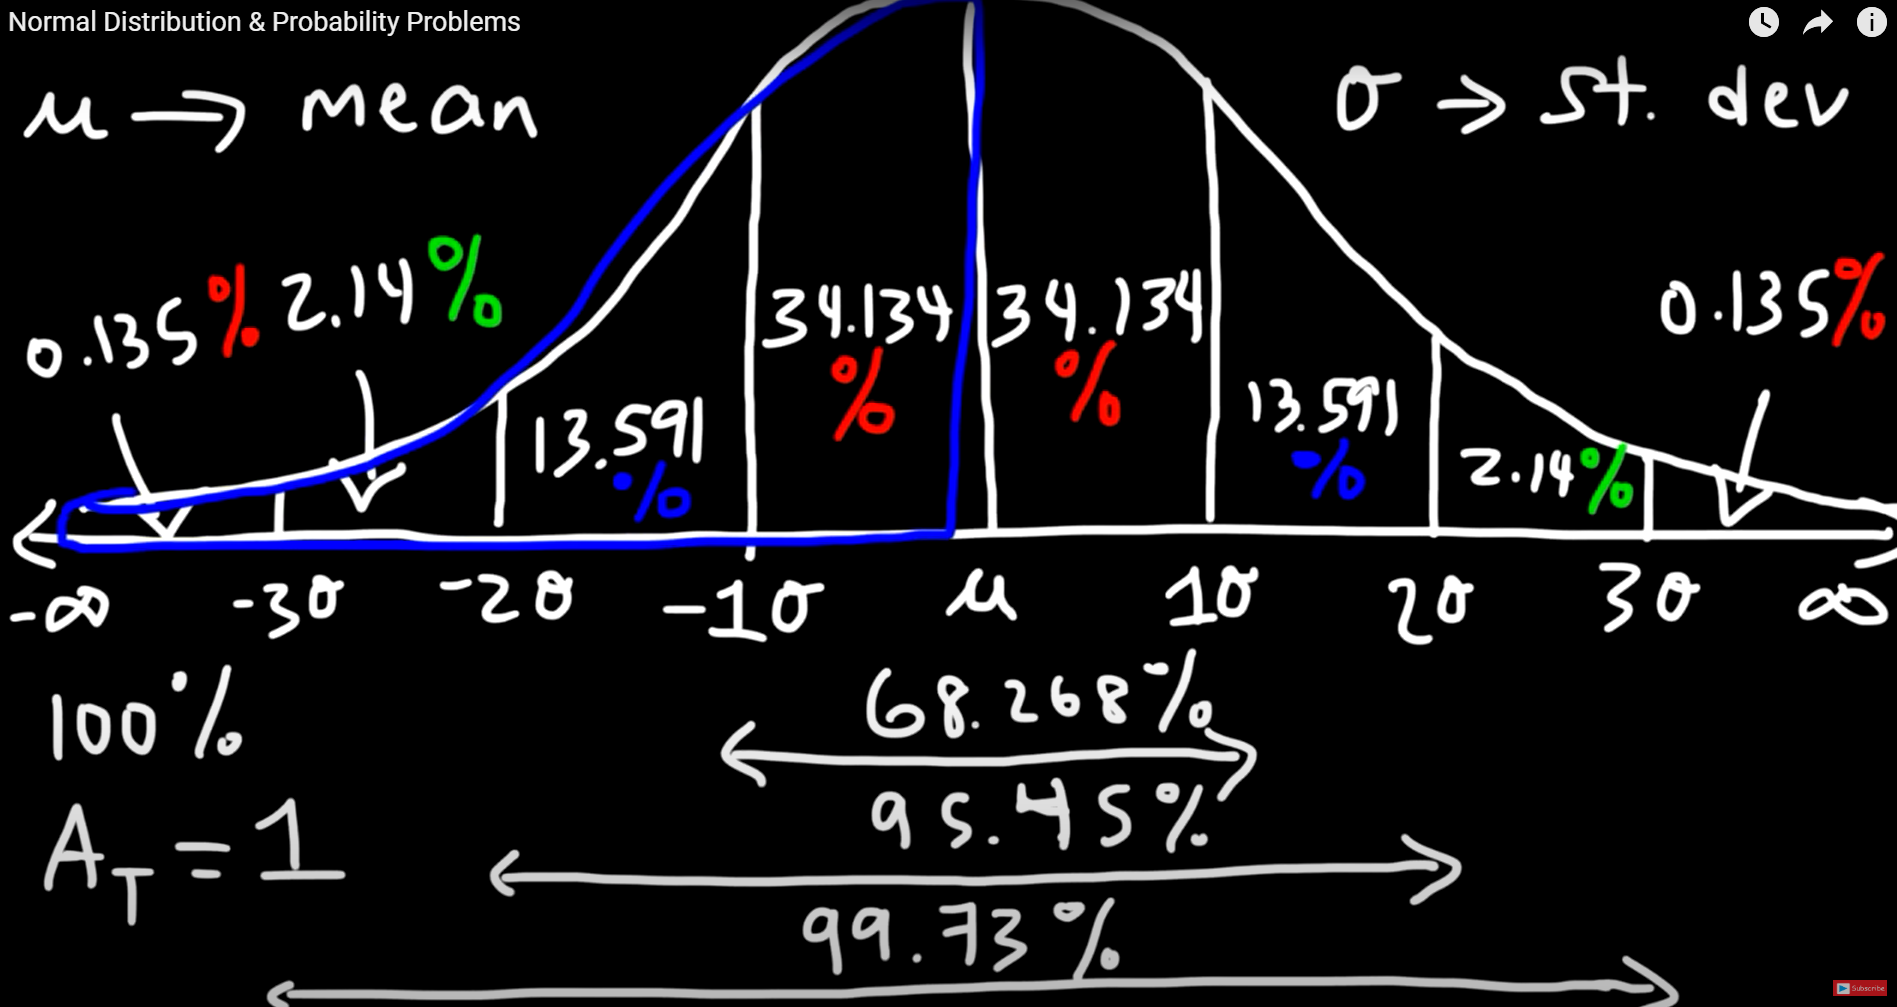 Normal Distribution & Probability Problems
μ → mean
σ → st. dev
0.135%
2.14%
13.591%
34.134%
34.134%
13.591%
2.14%
0.135%
-∞ -3σ -2σ -1σ μ 1σ 2σ 3σ ∞
68.268%
100%
95.45%
A_T = 1
99.73%
Subscribe